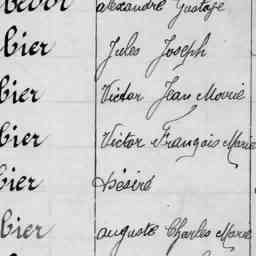 Alexandre Gustave
bier Jules Joseph
bier Victor Jean Marie
bier Victor François Marie
bier Désiré
bier Auguste Charles Marie